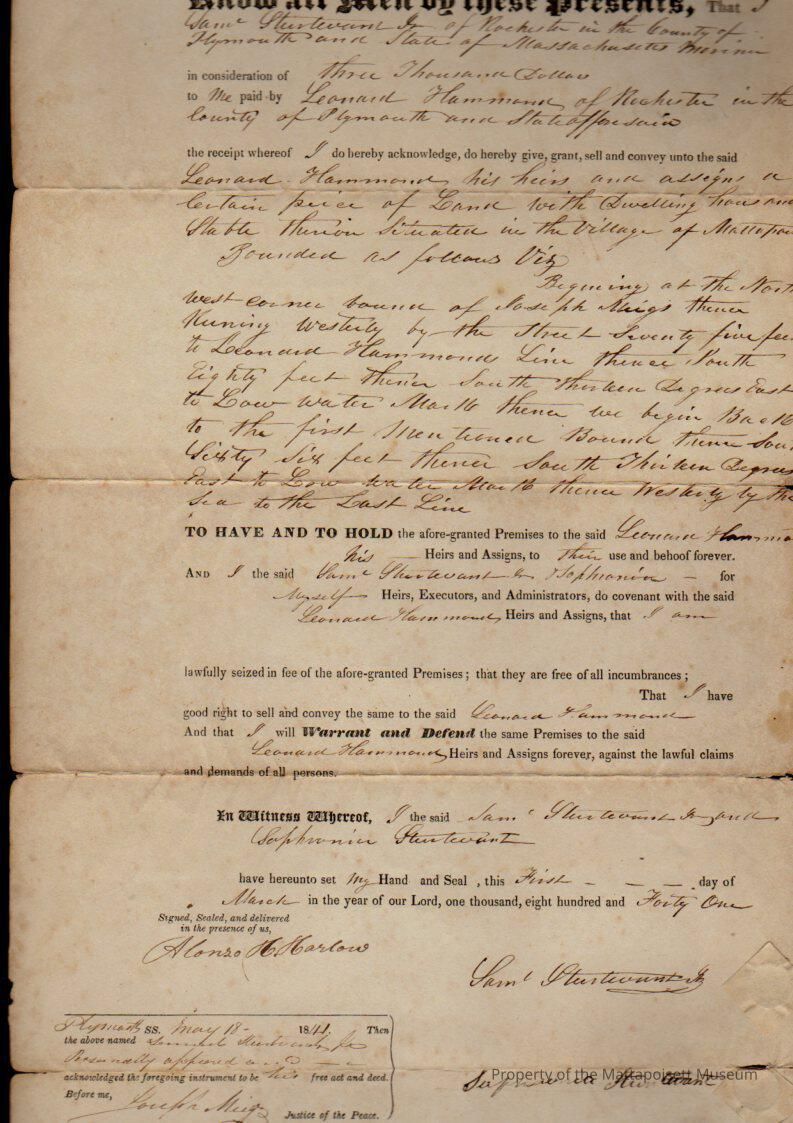 Know all Men by these Presents, That I
Sam.l Sturtevant Jr of Rochester in the County of
Plymouth and State of Massachusetts Mariner
in consideration of three Thousand Dollars
to Me paid by Leonard Hammond of Rochester in the
County of Plymouth and State afforesaid
the receipt whereof I do hereby acknowledge, do hereby give, grant, sell and convey unto the said
Leonard Hammond his heirs and assigns a
Certain peice of Land with Dwelling house and
Stable theron Situated in the Village of Mattapoi
Bounded as follows Viz
Begining at the North
west corner bound of Joseph Meigs thence
Runing Westerly by the Street Seventy five feet
to Leonard Hammonds Line thence South
Eighty feet thence South Thirteen Degrees East
to Low Water Mark thence we begin Back
to the first Mentioned Bound thence Sou
Sixty Six feet thence South Thirteen Degrees
East to Low water Mark thence Westerly by the
Sea to the Last Line
TO HAVE AND TO HOLD the afore-granted Premises to the said Leonard Hammo
his Heirs and Assigns, to their use and behoof forever.
AND I the said Sam.l Sturtevant Jr & Sophronia – for
Myself Heirs, Executors, and Administrators, do covenant with the said
Leonard Hammond Heirs and Assigns, that I am
lawfully seized in fee of the afore-granted Premises; that they are free of all incumbrances;
That I have
good right to sell and convey the same to the said Leonard Hammond
And that I will Warrant and Defend the same Premises to the said
Leonard Hammond Heirs and Assigns forever, against the lawful claims
and demands of all persons.
In Witness Whereof, I the said Sam.l Sturtevant Jr and
Sophronia Sturtevant
have hereunto set My Hand and Seal, this First – – – day of
March in the year of our Lord, one thousand, eight hundred and Forty One
Signed, Sealed, and delivered
in the presence of us,
Alonzo H Harlow
Sam.l Sturtevant Jr
Plymouth SS. May 18- 1841. Then
the above named Samuel Sturtevant Jr
Personally appeared and
acknowledged the foregoing instrument to be his free act and deed.
Before me,
Joseph Meigs Justice of the Peace.
Sophronia Sturtevant
Property of the Mattapoisett Museum